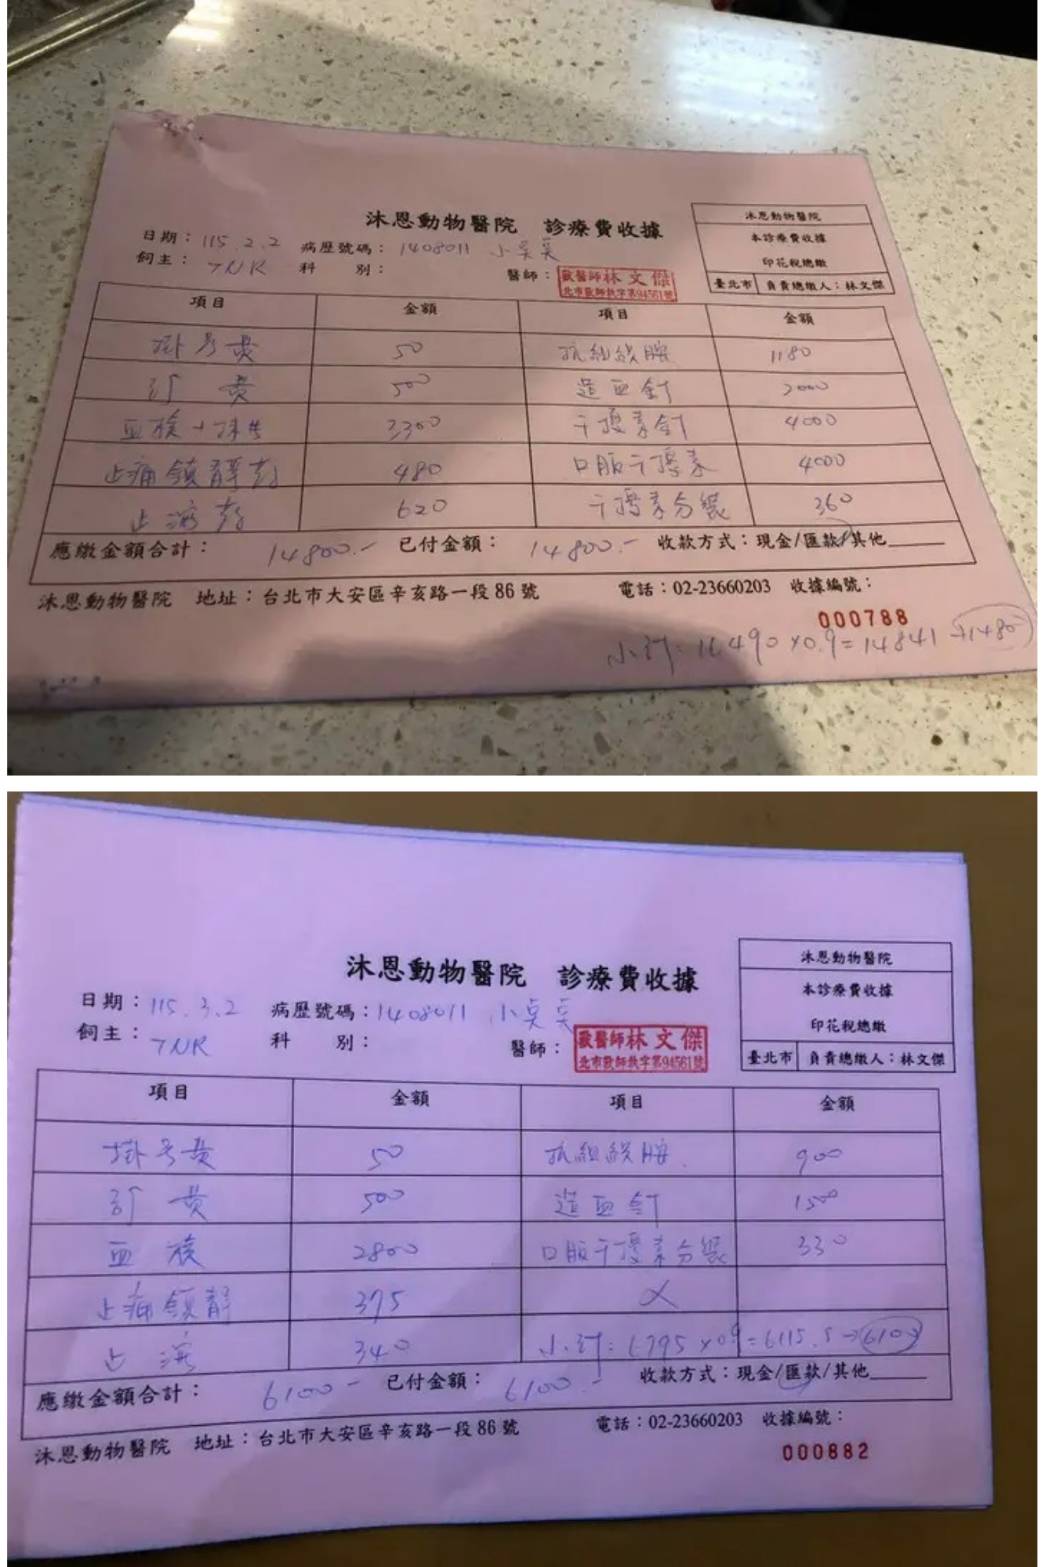 沐恩動物醫院 診療費收據
沐恩動物醫院
本診療費收據
印花稅總繳
臺北市 負責總繳人：林文傑
日期：115.2.2 病歷號碼：1408011
飼主：TNR 科 別： 醫師：獸醫師林文傑
北市獸師執字第94561號
項目 金額 項目 金額
掛号費 50 抗組織胺 1180
診費 500 造血針 2000
血檢+ 3300 干擾素針 4000
止痛鎮靜 480 口服干擾素 4000
止瀉 620 干擾素分裝 360
應繳金額合計：14800.- 已付金額：14800.- 收款方式：現金/匯款/其他
沐恩動物醫院 地址：台北市大安區辛亥路一段86號 電話：02-23660203 收據編號：
000788
小計: 16490 x0.9=14841→14800
沐恩動物醫院 診療費收據
沐恩動物醫院
本診療費收據
印花稅總繳
臺北市 負責總繳人：林文傑
日期：115.3.2 病歷號碼：1408011
飼主：TNR 科 別： 醫師：獸醫師林文傑
北市獸師執字第94561號
項目 金額 項目 金額
掛号費 50 抗組織胺 900
診費 500 造血針 1500
血檢 2800 口服干擾素分裝 330
止痛鎮靜 375
止瀉 340 小計: 6795 x0.9=6115.5→6100
應繳金額合計：6100- 已付金額：6100.- 收款方式：現金/匯款/其他
沐恩動物醫院 地址：台北市大安區辛亥路一段86號 電話：02-23660203 收據編號：
000882